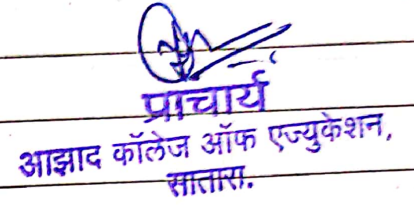 प्राचार्य
आझाद कॉलेज ऑफ एज्युकेशन,
सातारा.